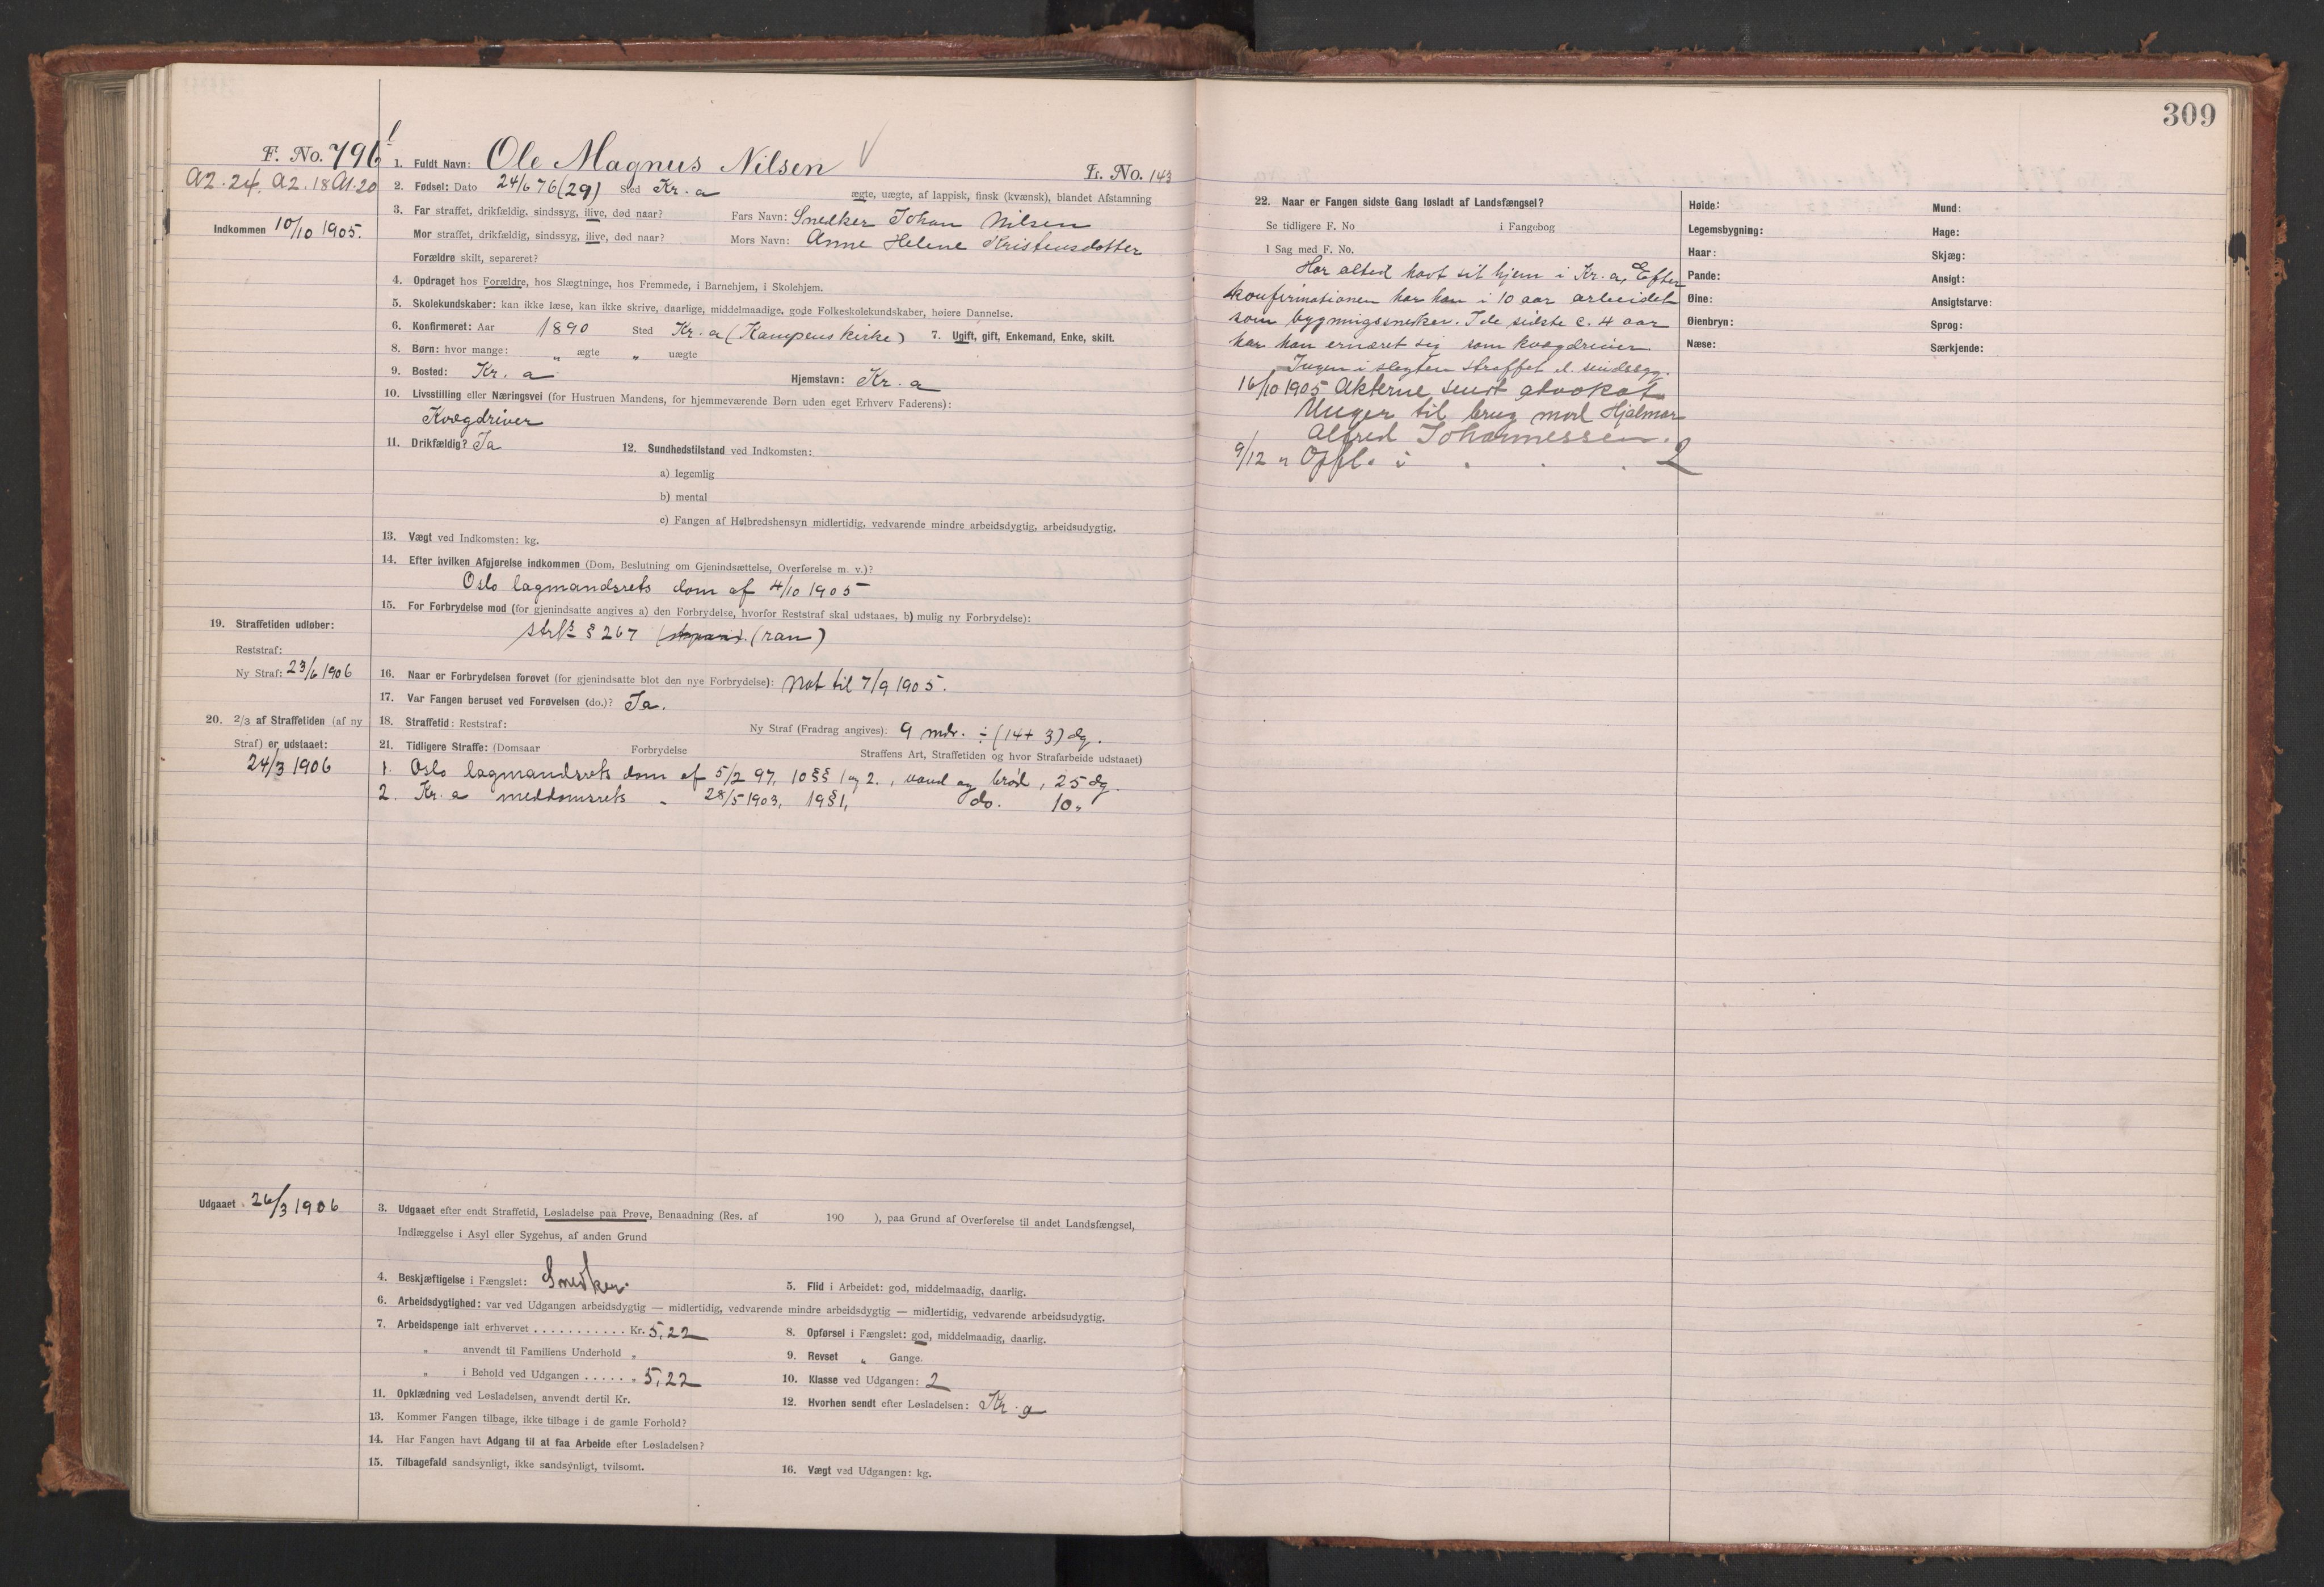 309
F. No. 796
A2.24. A2.18 A1.20
Indkommen 10/10 1905.
1. Fuldt Navn: Ole Magnus Nilsen
L. No. 143
2. Fødsel: Dato 24/6 76 (29) Sted Kr.a
ægte, uægte, af lappisk, finsk (kvænsk), blandet Afstamning
3. Far straffet, drikfældig, sindssyg, ilive, død naar? Fars Navn: Snedker Johan Nilsen
Mor straffet, drikfældig, sindssyg, ilive, død naar? Mors Navn: Anne Helene Kristensdatter
Forældre skilt, separeret?
4. Opdraget hos Forældre, hos Slægtninge, hos Fremmede, i Barnehjem, i Skolehjem.
5. Skolekundskaber: kan ikke læse, kan ikke skrive, daarlige, middelmaadige, gode Folkeskolekundskaber, høiere Dannelse.
6. Konfirmeret: Aar 1890 Sted Kr.a (Kampens kirke) 7. Ugift, gift, Enkemand, Enke, skilt.
8. Børn: hvor mange: „ ægte „ uægte
9. Bosted: Kr. a Hjemstavn: Kr. a
10. Livsstilling eller Næringsvei (for Hustruen Mandens, for hjemmeværende Børn uden eget Erhverv Faderens):
Kvægdriver
11. Drikfældig? Ja 12. Sundhedstilstand ved Indkomsten:
a) legemlig
b) mental
c) Fangen af Helbredshensyn midlertidig, vedvarende mindre arbeidsdygtig, arbeidsudygtig.
13. Vægt ved Indkomsten: kg.
14. Efter hvilken Afgjørelse indkommen (Dom, Beslutning om Gjenindsættelse, Overførelse m. v.)?
Oslo lagmandsrets dom af 4/10 1905
15. For Forbrydelse mod (for gjenindsatte angives a) den Forbrydelse, hvorfor Reststraf skal udstaaes, b) mulig ny Forbrydelse):
§ 267 (ran)
19. Straffetiden udløber:
Reststraf:
Ny Straf: 23/6 1906
16. Naar er Forbrydelsen forøvet (for gjenindsatte blot den nye Forbrydelse): Nat til 7/9 1905.
17. Var Fangen beruset ved Forøvelsen (do.)? Ja.
20. 2/3 af Straffetiden (af ny
Straf) er udstaaet:
24/3 1906
18. Straffetid: Reststraf: Ny Straf (Fradrag angives): 9 mdr. ÷ (14 + 3) dg.
21. Tidligere Straffe: (Domsaar Forbrydelse Straffens Art, Straffetiden og hvor Strafarbeide udstaaet)
1. Oslo lagmandsrets dom af 5/2 97, 10 §§ 1 og 2., vand og brød, 25 dg.
2. Kr. a meddomsrets „ 28/5 1903, 19 § 1, do. 10 „
Udgaaet 26/3 1906
3. Udgaaet efter endt Straffetid, Løsladelse paa Prøve, Benaadning (Res. af 190 ), paa Grund af Overførelse til andet Landsfængsel,
Indlæggelse i Asyl eller Sygehus, af anden Grund
4. Beskjæftigelse i Fængslet: Snedker. 5. Flid i Arbeidet: god, middelmaadig, daarlig.
6. Arbeidsdygtighed: var ved Udgangen arbeidsdygtig — midlertidig, vedvarende mindre arbeidsdygtig — midlertidig, vedvarende arbeidsudygtig.
7. Arbeidspenge ialt erhvervet . . . . . . . . . . . Kr. 5,22 8. Opførsel i Fængslet: god, middelmaadig, daarlig.
„ anvendt til Familiens Underhold „ 9. Revset „ Gange.
„ i Behold ved Udgangen . . . . . „ 5,22 10. Klasse ved Udgangen: 2
11. Opklædning ved Løsladelsen, anvendt dertil Kr. 12. Hvorhen sendt efter Løsladelsen: Kr. a
13. Kommer Fangen tilbage, ikke tilbage i de gamle Forhold?
14. Har Fangen havt Adgang til at faa Arbeide efter Løsladelsen?
15. Tilbagefald sandsynligt, ikke sandsynligt, tvilsomt. 16. Vægt ved Udgangen: kg.
22. Naar er Fangen sidste Gang løsladt af Landsfængsel?
Se tidligere F. No i Fangebog
I Sag med F. No.
Har altid havt sit hjem i Kr. a, Efter
konfirmationen har han i 10 aar arbeidet
som bygningssnedker. I de sidste c. 4 aar
har han ernæret sig som kvægdriver.
Ingen i slegten straffet el. sindssyg.
16/10 1905 Akterne sendt advokat
Unger til brug mod Hjalmar
Alfred Johannessen.
9/12 „ Opfl. i . . . 2
Høide:
Legemsbygning:
Haar:
Pande:
Øine:
Øienbryn:
Næse:
Mund:
Hage:
Skjæg:
Ansigt:
Ansigtsfarve:
Sprog:
Særkjende: